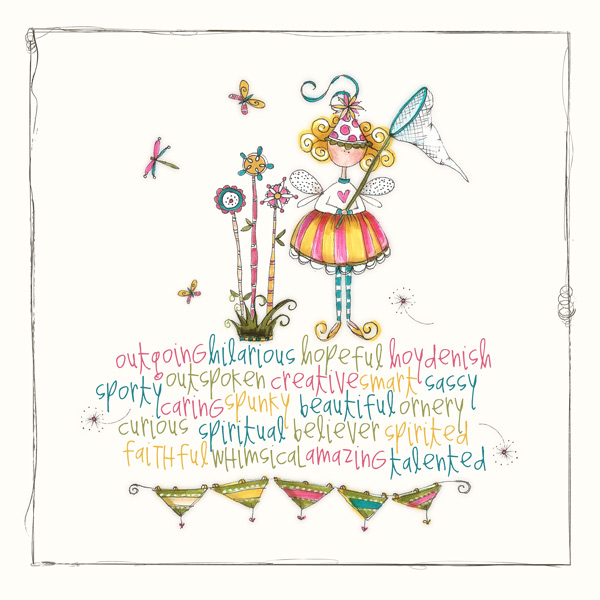 outgoing hilarious hopeful hoydenish
sporty outspoken creative smart sassy
caring spunky beautiful ornery
curious spiritual believer spirited
faithful whimsical amazing talented